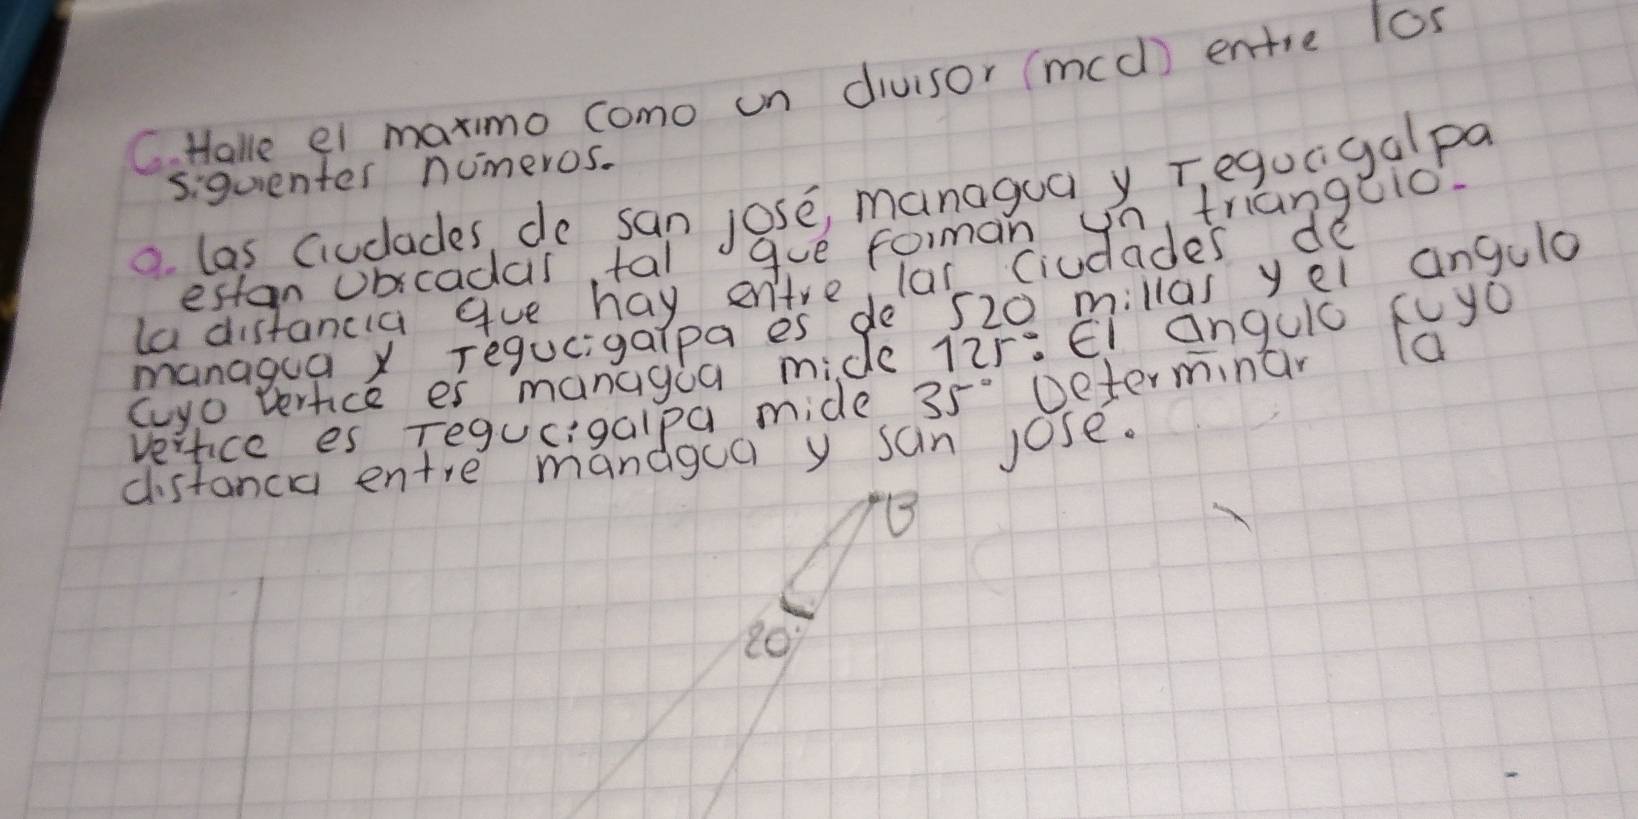 C. Halle el maximo como un divisor (mcd) entre los
siguientes números.
a. las ciudades de san josé, managua y Tegucigalpa
estan ubicadas tal que forman un triangulo.
la distancia que hay entre las ciudades de
managua y Tegucigalpa es de 520 millas y el angulo
cuyo vertice es managua mide 125°. El angulo cuyo
vertice es Tegucigalpa mide 35° Determinar la
distancia entre managua y san jose.
B
20°